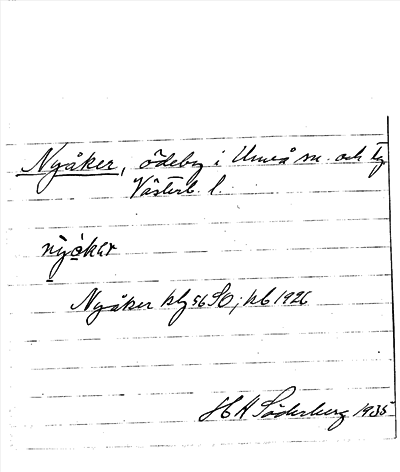 Nyåker, ödeby i Umeå sn. och tg
Västerb. l.
nỳokar
Nyåker hlj 56 SO; hb 1926
H H Söderberg 1935